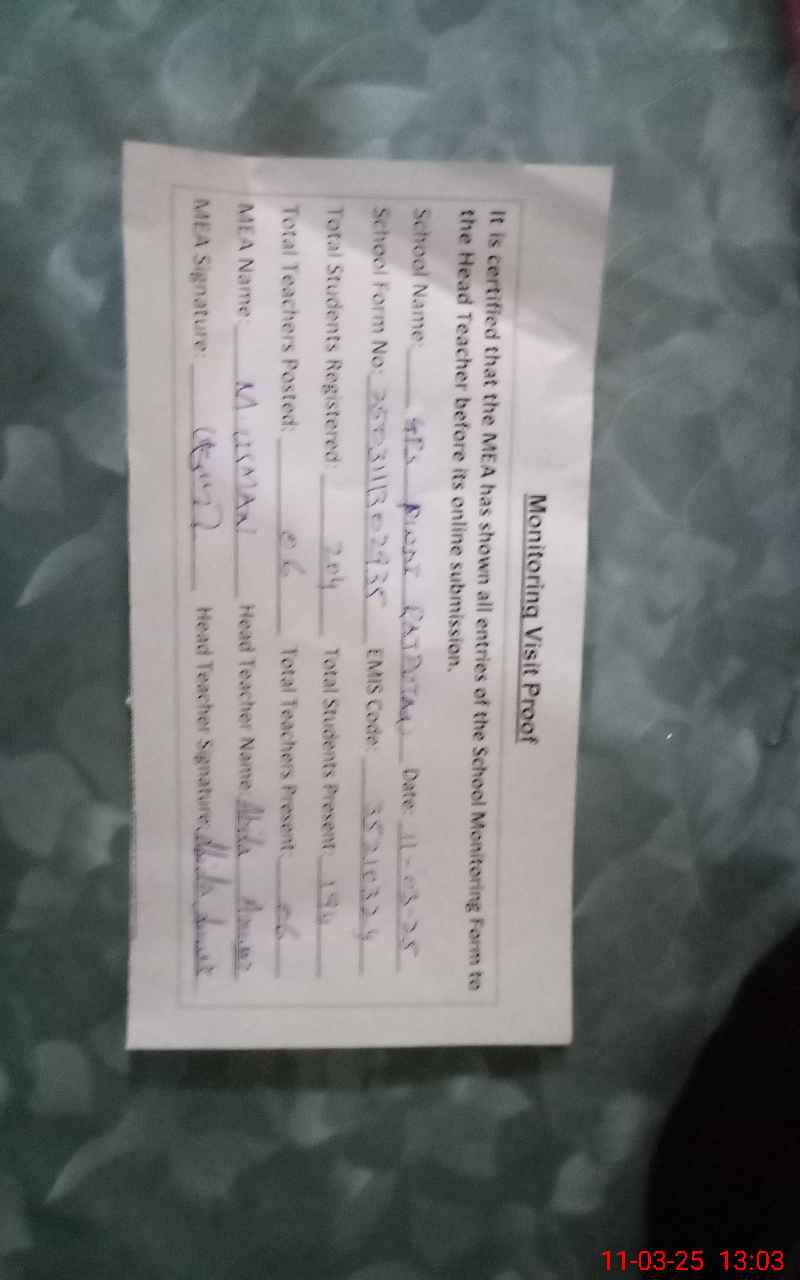 Monitoring Visit Proof
It is certified that the MEA has shown all entries of the School Monitoring Form to
the Head Teacher before its online submission.
School Name: PINDI RAJPUTAN Date: 11-03-25
School Form No: EMIS Code: 35210324
Total Students Registered: 204 Total Students Present: 194
Total Teachers Posted: 06 Total Teachers Present: 06
MEA Name: M USMAN Head Teacher Name: Abida
MEA Signature: Head Teacher Signature: Abida
11-03-25 13:03